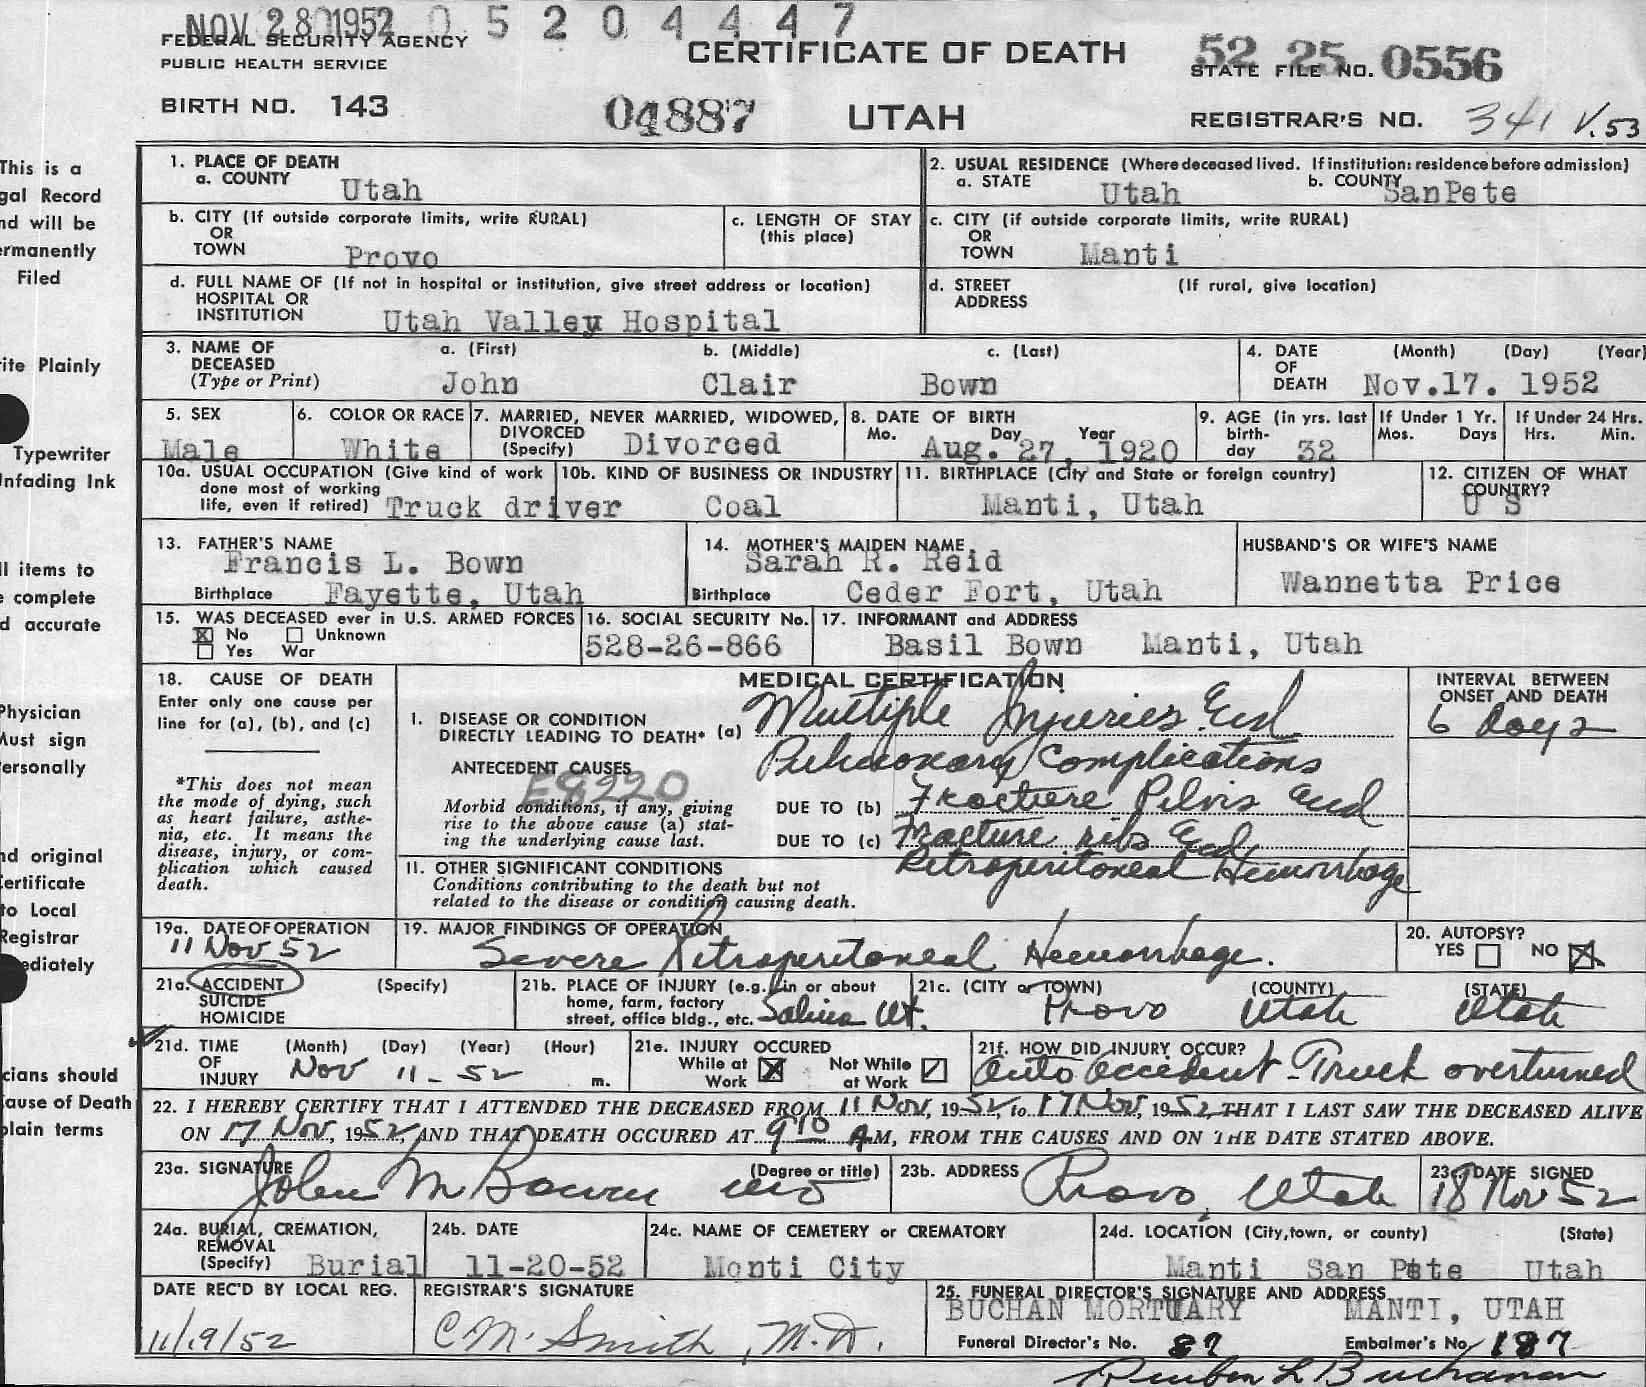 NOV 28 1952 0 5 2 0 4 4 4 7
FEDERAL SECURITY AGENCY
PUBLIC HEALTH SERVICE
CERTIFICATE OF DEATH
52 25 0556
STATE FILE NO.
BIRTH NO. 143
04887
UTAH
REGISTRAR'S NO. 341 V.53
This is a
gal Record
nd will be
ermanently
Filed
rite Plainly
Typewriter
nfading Ink
ll items to
e complete
d accurate
Physician
Must sign
ersonally
nd original
ertificate
to Local
Registrar
ediately
cians should
ause of Death
plain terms
1. PLACE OF DEATH
a. COUNTY Utah
2. USUAL RESIDENCE (Where deceased lived. If institution: residence before admission)
a. STATE Utah b. COUNTY SanPete
b. CITY (If outside corporate limits, write RURAL)
OR
TOWN Provo
c. LENGTH OF STAY
(this place)
c. CITY (if outside corporate limits, write RURAL)
OR
TOWN Manti
d. FULL NAME OF (If not in hospital or institution, give street address or location)
HOSPITAL OR
INSTITUTION Utah Valley Hospital
d. STREET (If rural, give location)
ADDRESS
3. NAME OF DECEASED
(Type or Print)
a. (First) b. (Middle) c. (Last)
John Clair Bown
4. DATE OF DEATH (Month) (Day) (Year)
Nov.17. 1952
5. SEX
Male
6. COLOR OR RACE
White
7. MARRIED, NEVER MARRIED, WIDOWED,
DIVORCED
(Specify) Divorced
8. DATE OF BIRTH
Mo. Day Year
Aug. 27, 1920
9. AGE (in yrs. last
birth-
day 32
If Under 1 Yr.
Mos. Days
If Under 24 Hrs.
Hrs. Min.
10a. USUAL OCCUPATION (Give kind of work
done most of working
life, even if retired) Truck driver
10b. KIND OF BUSINESS OR INDUSTRY
Coal
11. BIRTHPLACE (City and State or foreign country)
Manti, Utah
12. CITIZEN OF WHAT
COUNTRY?
U S
13. FATHER'S NAME
Francis L. Bown
Birthplace Fayette, Utah
14. MOTHER'S MAIDEN NAME
Sarah R. Reid
Birthplace Ceder Fort, Utah
HUSBAND'S OR WIFE'S NAME
Wannetta Price
15. WAS DECEASED ever in U.S. ARMED FORCES
No Unknown
Yes War
16. SOCIAL SECURITY No.
528-26-866
17. INFORMANT and ADDRESS
Basil Bown Manti, Utah
18. CAUSE OF DEATH
Enter only one cause per
line for (a), (b), and (c)
*This does not mean
the mode of dying, such
as heart failure, asthe-
nia, etc. It means the
disease, injury, or com-
plication which caused
death.
MEDICAL CERTIFICATION
INTERVAL BETWEEN
ONSET AND DEATH
6 Days
I. DISEASE OR CONDITION
DIRECTLY LEADING TO DEATH* (a) Multiple Injuries and
Pulmonary Complications
ANTECEDENT CAUSES
E8220
Morbid conditions, if any, giving
rise to the above cause (a) stat-
ing the underlying cause last.
DUE TO (b) Fracture Pelvis and
DUE TO (c) Fracture ribs and
Retroperitoneal Hemorrhage
II. OTHER SIGNIFICANT CONDITIONS
Conditions contributing to the death but not
related to the disease or condition causing death.
19a. DATE OF OPERATION
11 Nov 52
19. MAJOR FINDINGS OF OPERATION
Severe Retroperitoneal Hemorrhage.
20. AUTOPSY?
YES NO
21a. ACCIDENT (Specify)
SUICIDE
HOMICIDE
21b. PLACE OF INJURY (e.g. in or about
home, farm, factory
street, office bldg., etc. Salina Ut.
21c. (CITY or TOWN) (COUNTY) (STATE)
Provo Utah Utah
21d. TIME (Month) (Day) (Year) (Hour)
OF
INJURY Nov 11 - 52 m.
21e. INJURY OCCURED
While at Work
Not While at Work
21f. HOW DID INJURY OCCUR?
Auto Accident - Truck overturned
22. I HEREBY CERTIFY THAT I ATTENDED THE DECEASED FROM 11 Nov, 1952, to 17 Nov, 1952, THAT I LAST SAW THE DECEASED ALIVE
ON 17 Nov, 1952, AND THAT DEATH OCCURED AT 9 10 A M, FROM THE CAUSES AND ON THE DATE STATED ABOVE.
23a. SIGNATURE (Degree or title)
John M Bowen MD
23b. ADDRESS
Provo, Utah
23c DATE SIGNED
18 Nov 52
24a. BURIAL, CREMATION,
REMOVAL
(Specify) Burial
24b. DATE
11-20-52
24c. NAME OF CEMETERY or CREMATORY
Monti City
24d. LOCATION (City, town, or county) (State)
Manti San Pete Utah
DATE REC'D BY LOCAL REG.
11/19/52
REGISTRAR'S SIGNATURE
C M. Smith, M.D.
25. FUNERAL DIRECTOR'S SIGNATURE AND ADDRESS
BUCHAN MORTUARY MANTI, UTAH
Funeral Director's No. 87 Embalmer's No 187
Reuben L Buchanan